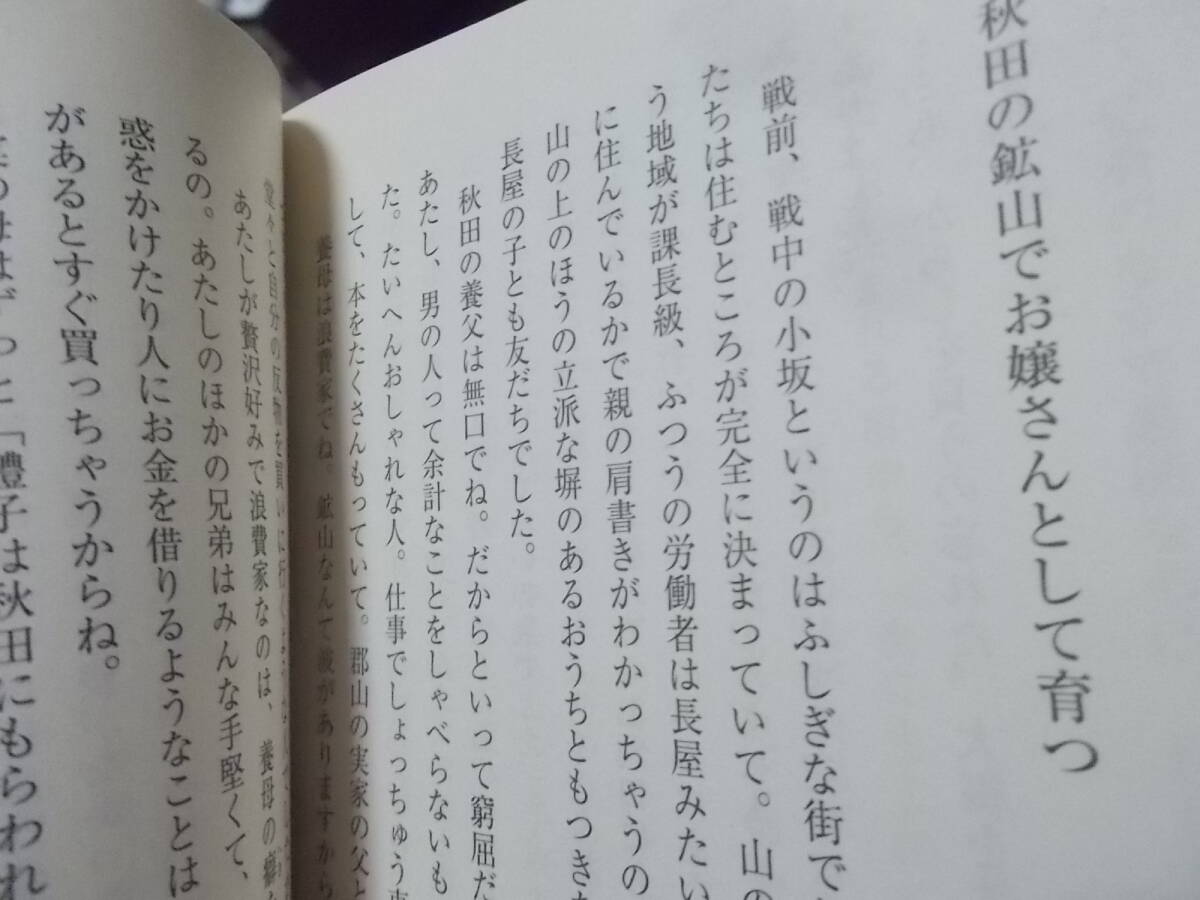 秋田の鉱山でお嬢さんとして育つ
戦前、戦中の小坂というのはふしぎな街で
たちは住むところが完全に決まっていて。山の
う地域が課長級、ふつうの労働者は長屋みたい
に住んでいるかで親の肩書きがわかっちゃうの
山の上のほうの立派な塀のあるおうちともつき
長屋の子とも友だちでした。
秋田の養父は無口でね。だからといって窮屈だ
あたし、男の人って余計なことをしゃべらないも
た。たいへんおしゃれな人。仕事でしょっちゅう
して、本をたくさんもっていて。郡山の実家の父と
養母は浪費家でね。鉱山なんて波がありますから
堂々と自分の反物を買いに行く
あたしが贅沢好みで浪費家なのは、養母の癖
るの。あたしのほかの兄弟はみんな手堅くて、
惑をかけたり人にお金を借りるようなことは
があるとすぐ買っちゃうからね。
母はずっと「禮子は秋田にもらわれ